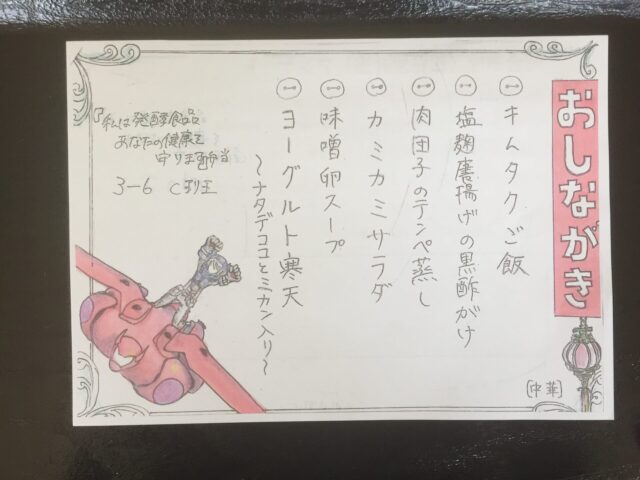 おしながき
㊀ キムタクご飯
㊀ 塩麹唐揚げの黒酢がけ
㊀ 肉団子のテンペ蒸し
㊀ カミカミサラダ
㊀ 味噌卵スープ
㊀ ヨーグルト寒天
～ナタデココとミカン入り～
『私は発酵食品
あなたの健康を
守りま弁当
3-6 C班
[中華]